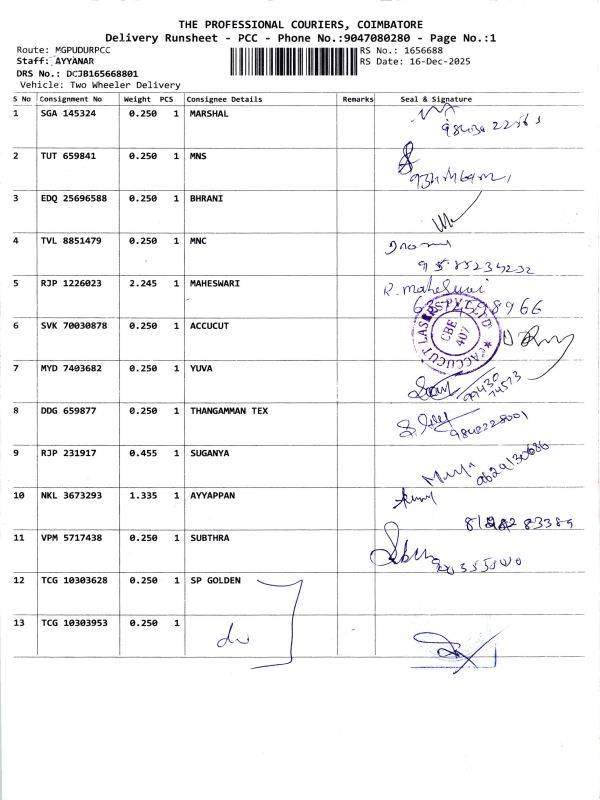 THE PROFESSIONAL COURIERS, COIMBATORE
Delivery Runsheet - PCC - Phone No.:9047080280 - Page No.:1
Route: MGPUDURPCC RS No.: 1656688
Staff: AYYANAR RS Date: 16-Dec-2025
DRS No.: DCJB165668801
Vehicle: Two Wheeler Delivery
S No Consignment No Weight PCS Consignee Details Remarks Seal & Signature
1 SGA 145324 0.250 1 MARSHAL
2 TUT 659841 0.250 1 MNS
3 EDQ 25696588 0.250 1 BHRANI
4 TVL 8851479 0.250 1 MNC
9585234232
5 RJP 1226023 2.245 1 MAHESWARI R. maheswari
6 SVK 70030878 0.250 1 ACCUCUT ACCUCUT LASERS PVT LTD CBE 407
7 MYD 7403682 0.250 1 YUVA
99430
74573
8 DDG 659877 0.250 1 THANGAMMAN TEX
9842228001
9 RJP 231917 0.455 1 SUGANYA
10 NKL 3673293 1.335 1 AYYAPPAN
11 VPM 5717438 0.250 1 SUBTHRA
12 TCG 10303628 0.250 1 SP GOLDEN
13 TCG 10303953 0.250 1